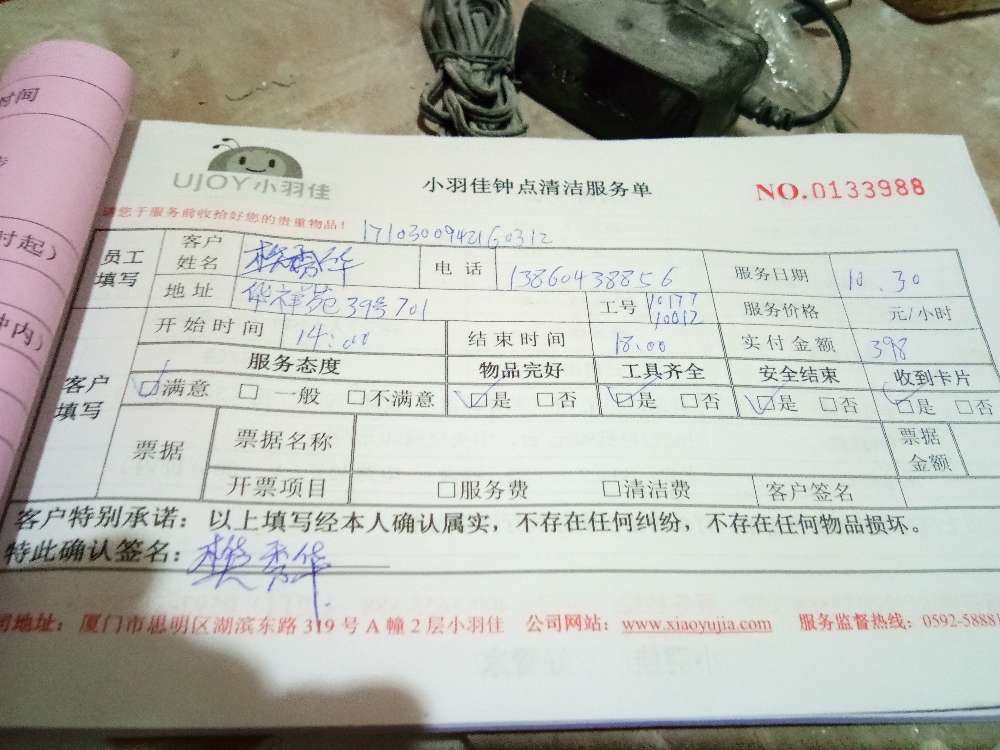 时间
时起）
钟内）
UJOY小羽佳
小羽佳钟点清洁服务单
NO.0133988
请您于服务前收拾好您的贵重物品！
1710300942160312
员工填写 客户姓名 樊秀华 电话 13860438856 服务日期 10.30
地址 华祥苑39号701 工号 10177 10012 服务价格 元/小时
开始时间 14:00 结束时间 18:00 实付金额 398
客户填写 服务态度 物品完好 工具齐全 安全结束 收到卡片
□满意 □一般 □不满意 □是 □否 □是 □否 □是 □否 □是 □否
票据 票据名称 票据金额
开票项目 □服务费 □清洁费 客户签名
客户特别承诺：以上填写经本人确认属实，不存在任何纠纷，不存在任何物品损坏。
特此确认签名：樊秀华
司地址：厦门市思明区湖滨东路319号A幢2层小羽佳 公司网站：www.xiaoyujia.com 服务监督热线：0592-58881